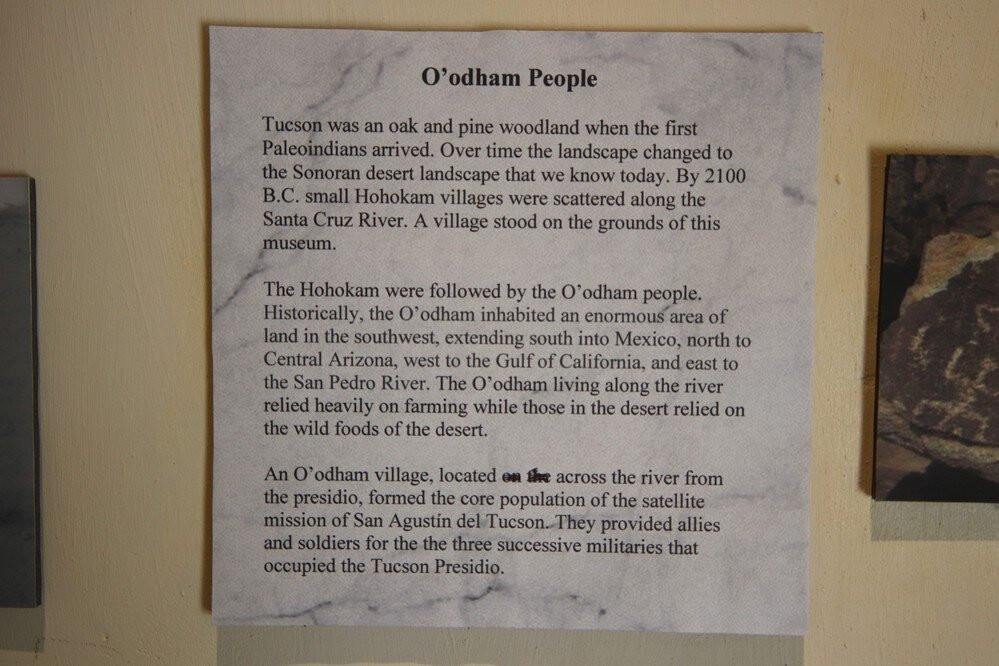 O’odham People
Tucson was an oak and pine woodland when the first
Paleoindians arrived. Over time the landscape changed to
the Sonoran desert landscape that we know today. By 2100
B.C. small Hohokam villages were scattered along the
Santa Cruz River. A village stood on the grounds of this
museum.
The Hohokam were followed by the O’odham people.
Historically, the O’odham inhabited an enormous area of
land in the southwest, extending south into Mexico, north to
Central Arizona, west to the Gulf of California, and east to
the San Pedro River. The O’odham living along the river
relied heavily on farming while those in the desert relied on
the wild foods of the desert.
An O’odham village, located on the across the river from
the presidio, formed the core population of the satellite
mission of San Agustín del Tucson. They provided allies
and soldiers for the the three successive militaries that
occupied the Tucson Presidio.